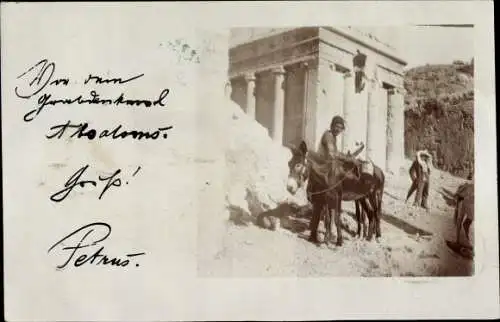 Vor dem
Grabdenkmal
Absaloms.
Gruß!
Petrus.